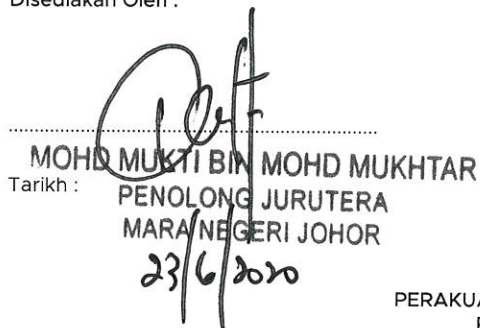 Disediakan Oleh :
MOHD MUKTI BIN MOHD MUKHTAR
Tarikh :
PENOLONG JURUTERA
MARA NEGERI JOHOR
23/6/2020